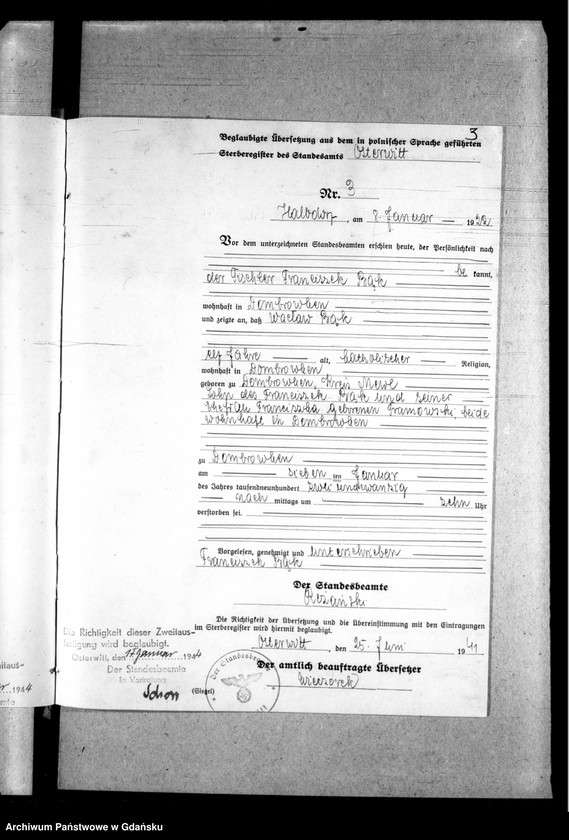 3
Beglaubigte Übersetzung aus dem in polnischer Sprache geführten
Sterberegister des Standesamts Osterwitt
Nr. 3
Halbdorf, am 8. Januar 1922
Vor dem unterzeichneten Standesbeamten erschien heute, der Persönlichkeit nach
be kannt,
der Tischler Franciszek Bąk
wohnhaft in Dombrowken
und zeigte an, daß Wacław Bąk
elf Jahre alt, katholischer Religion,
wohnhaft in Dombrowken
geboren zu Dombrowken, Kreis Mewe
Sohn des Franciszek Bąk und seiner
Ehefrau Franciszka geborenen Gramowski, beide
wohnhaft in Dombrowken
zu Dombrowken
am sieben ten Januar
des Jahres tausendneunhundert zweiundzwanzig
nach mittags um zehn Uhr
verstorben sei.
Vorgelesen, genehmigt und unterschrieben
Franciszek Bąk
Der Standesbeamte
Die Richtigkeit der Übersetzung und die Übereinstimmung mit den Eintragungen
im Sterberegister wird hiermit beglaubigt.
Osterwitt, den 25. Juni 1941
Der amtlich beauftragte Übersetzer
(Siegel) Wieczorek
Der Standesbeamte
Die Richtigkeit dieser Zweitaus-
fertigung wird beglaubigt.
Osterwitt, den 17 Januar 1944
Der Standesbeamte
In Vertretung
Schon
1944
Archiwum Państwowe w Gdańsku